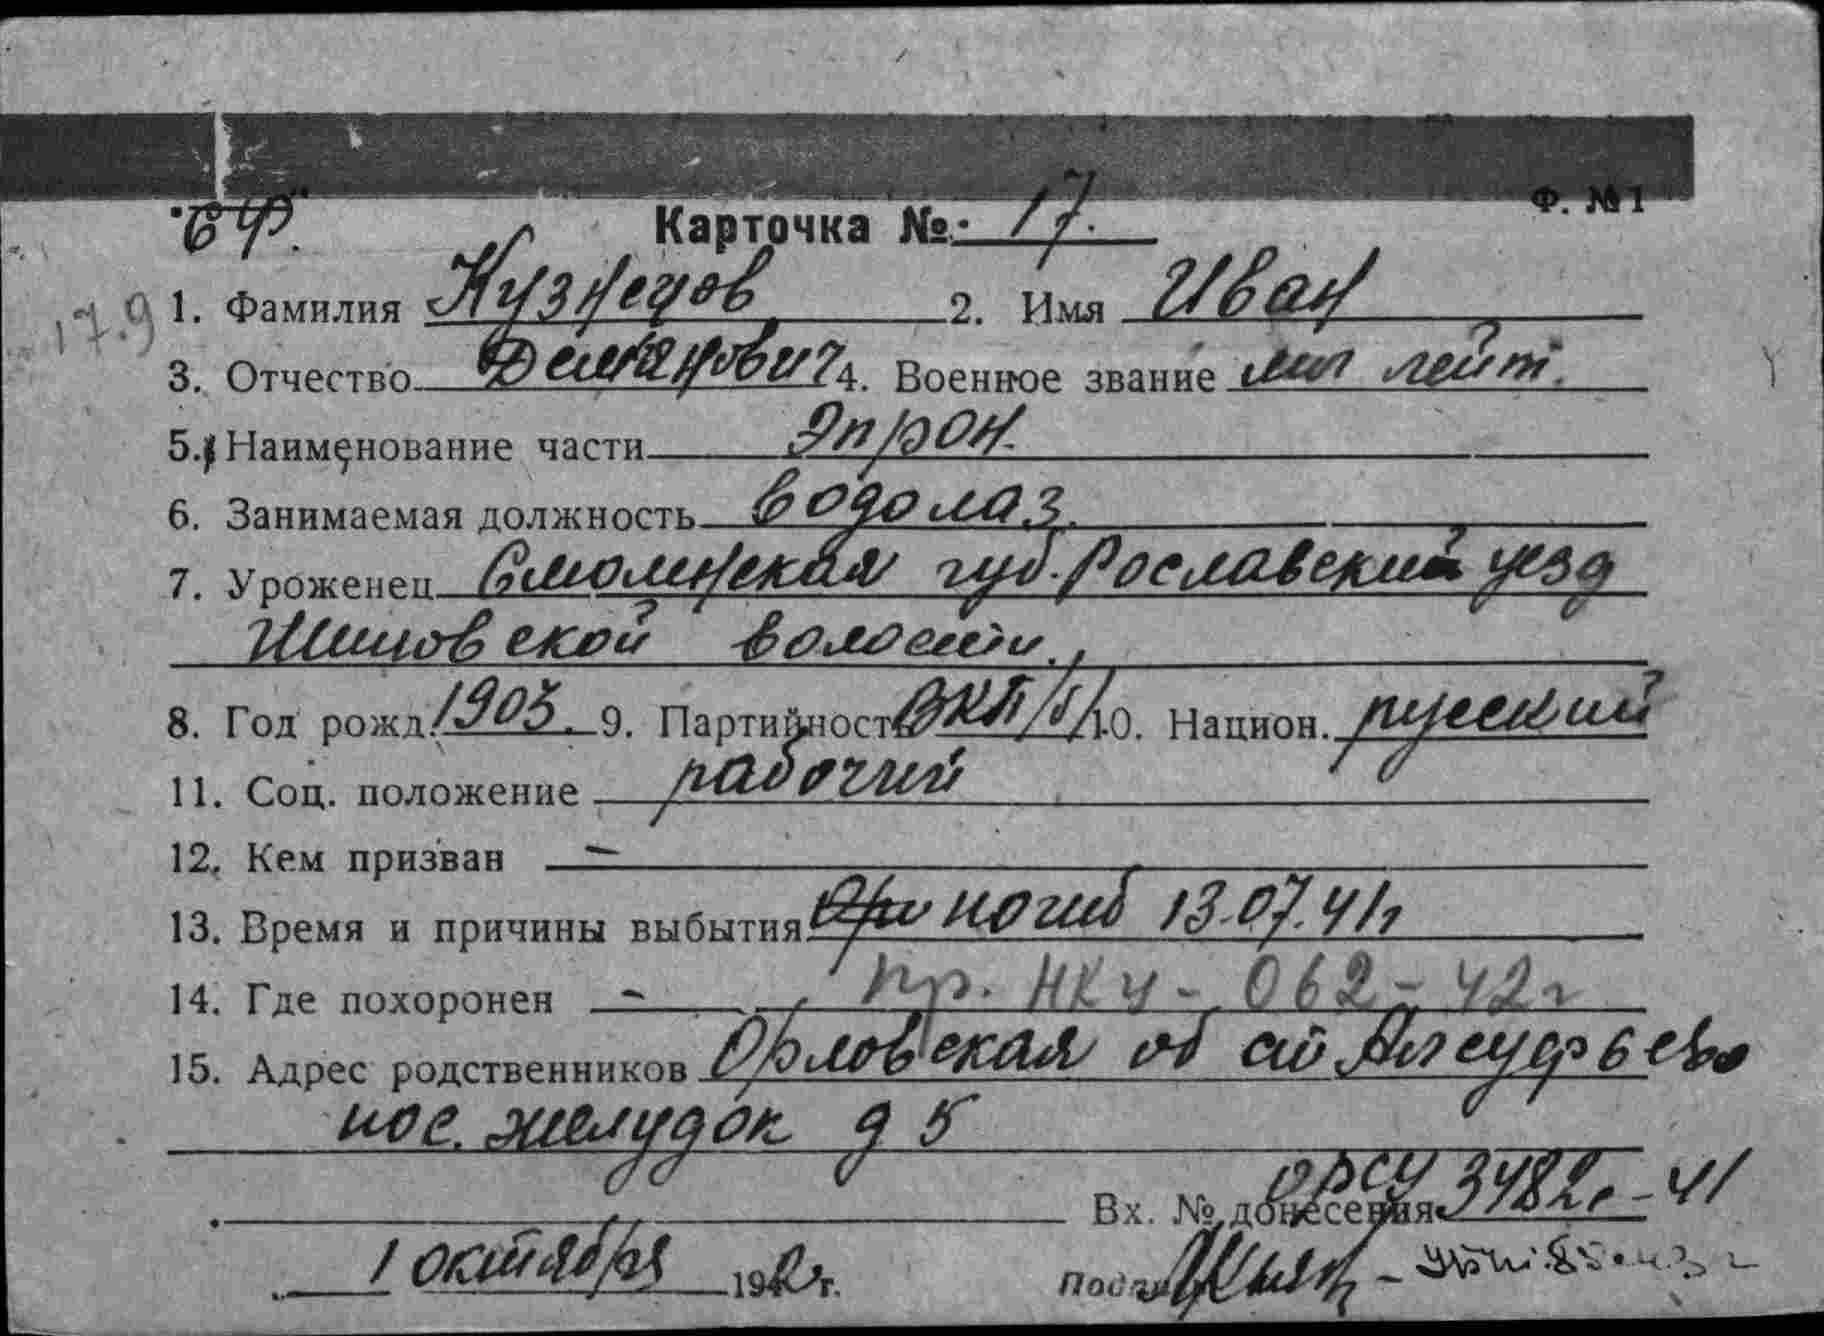 Ф. №1
БФ.
Карточка № 17.
17.9
1. Фамилия Кузнецов 2. Имя Иван
3. Отчество Демьянович 4. Военное звание мл лейт.
5. Наименование части Эпрон.
6. Занимаемая должность водолаз.
7. Уроженец Смоленская губ. Рославский уезд
волости.
8. Год рожд. 1903. 9. Партийность ВКП/б/ 10. Национ. русский
11. Соц. положение рабочий
12. Кем призван –
13. Время и причины выбытия погиб 13.07.41г
14. Где похоронен – пр. НКУ - 062 - 42г
15. Адрес родственников Орловская об ст
пос. желудок д 5
Вх. № донесения 3482с - 41
1 октября 1942 г.